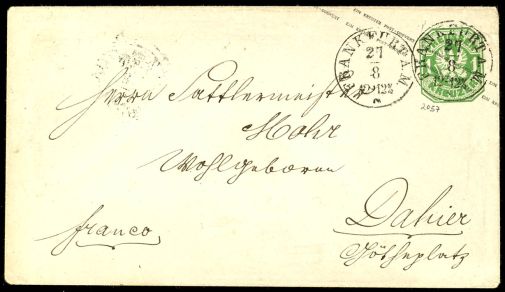 FRANKFURT A.M.
27
8
12-12½N
FRANKFURT A.M.
27
8
12-12½N
KREUZER
2057
Herrn Sattlermeister
Mohr
Wohlgeboren
franco
Dahier
Götheplatz